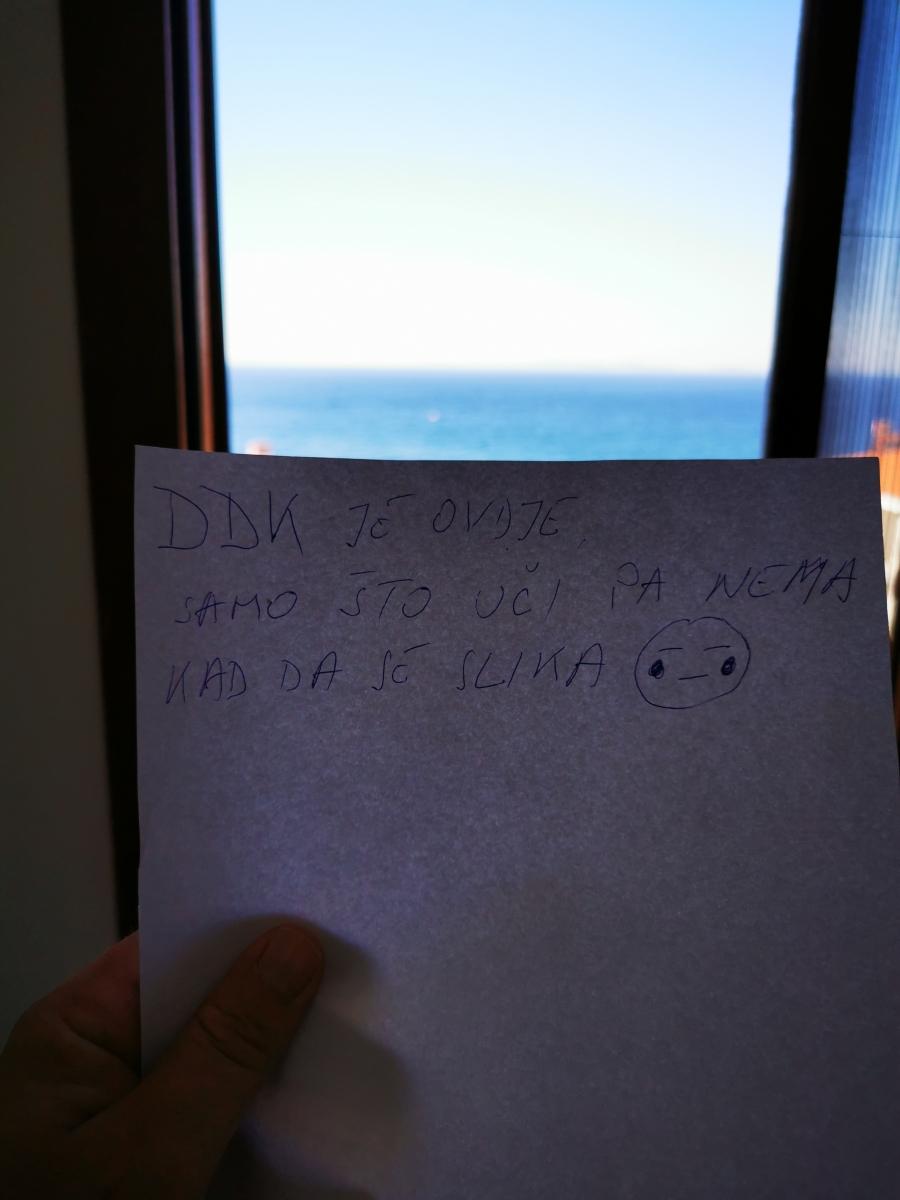 DDK JE OVDJE,
SAMO ŠTO UČI PA NEMA
KAD DA SE SLIKA